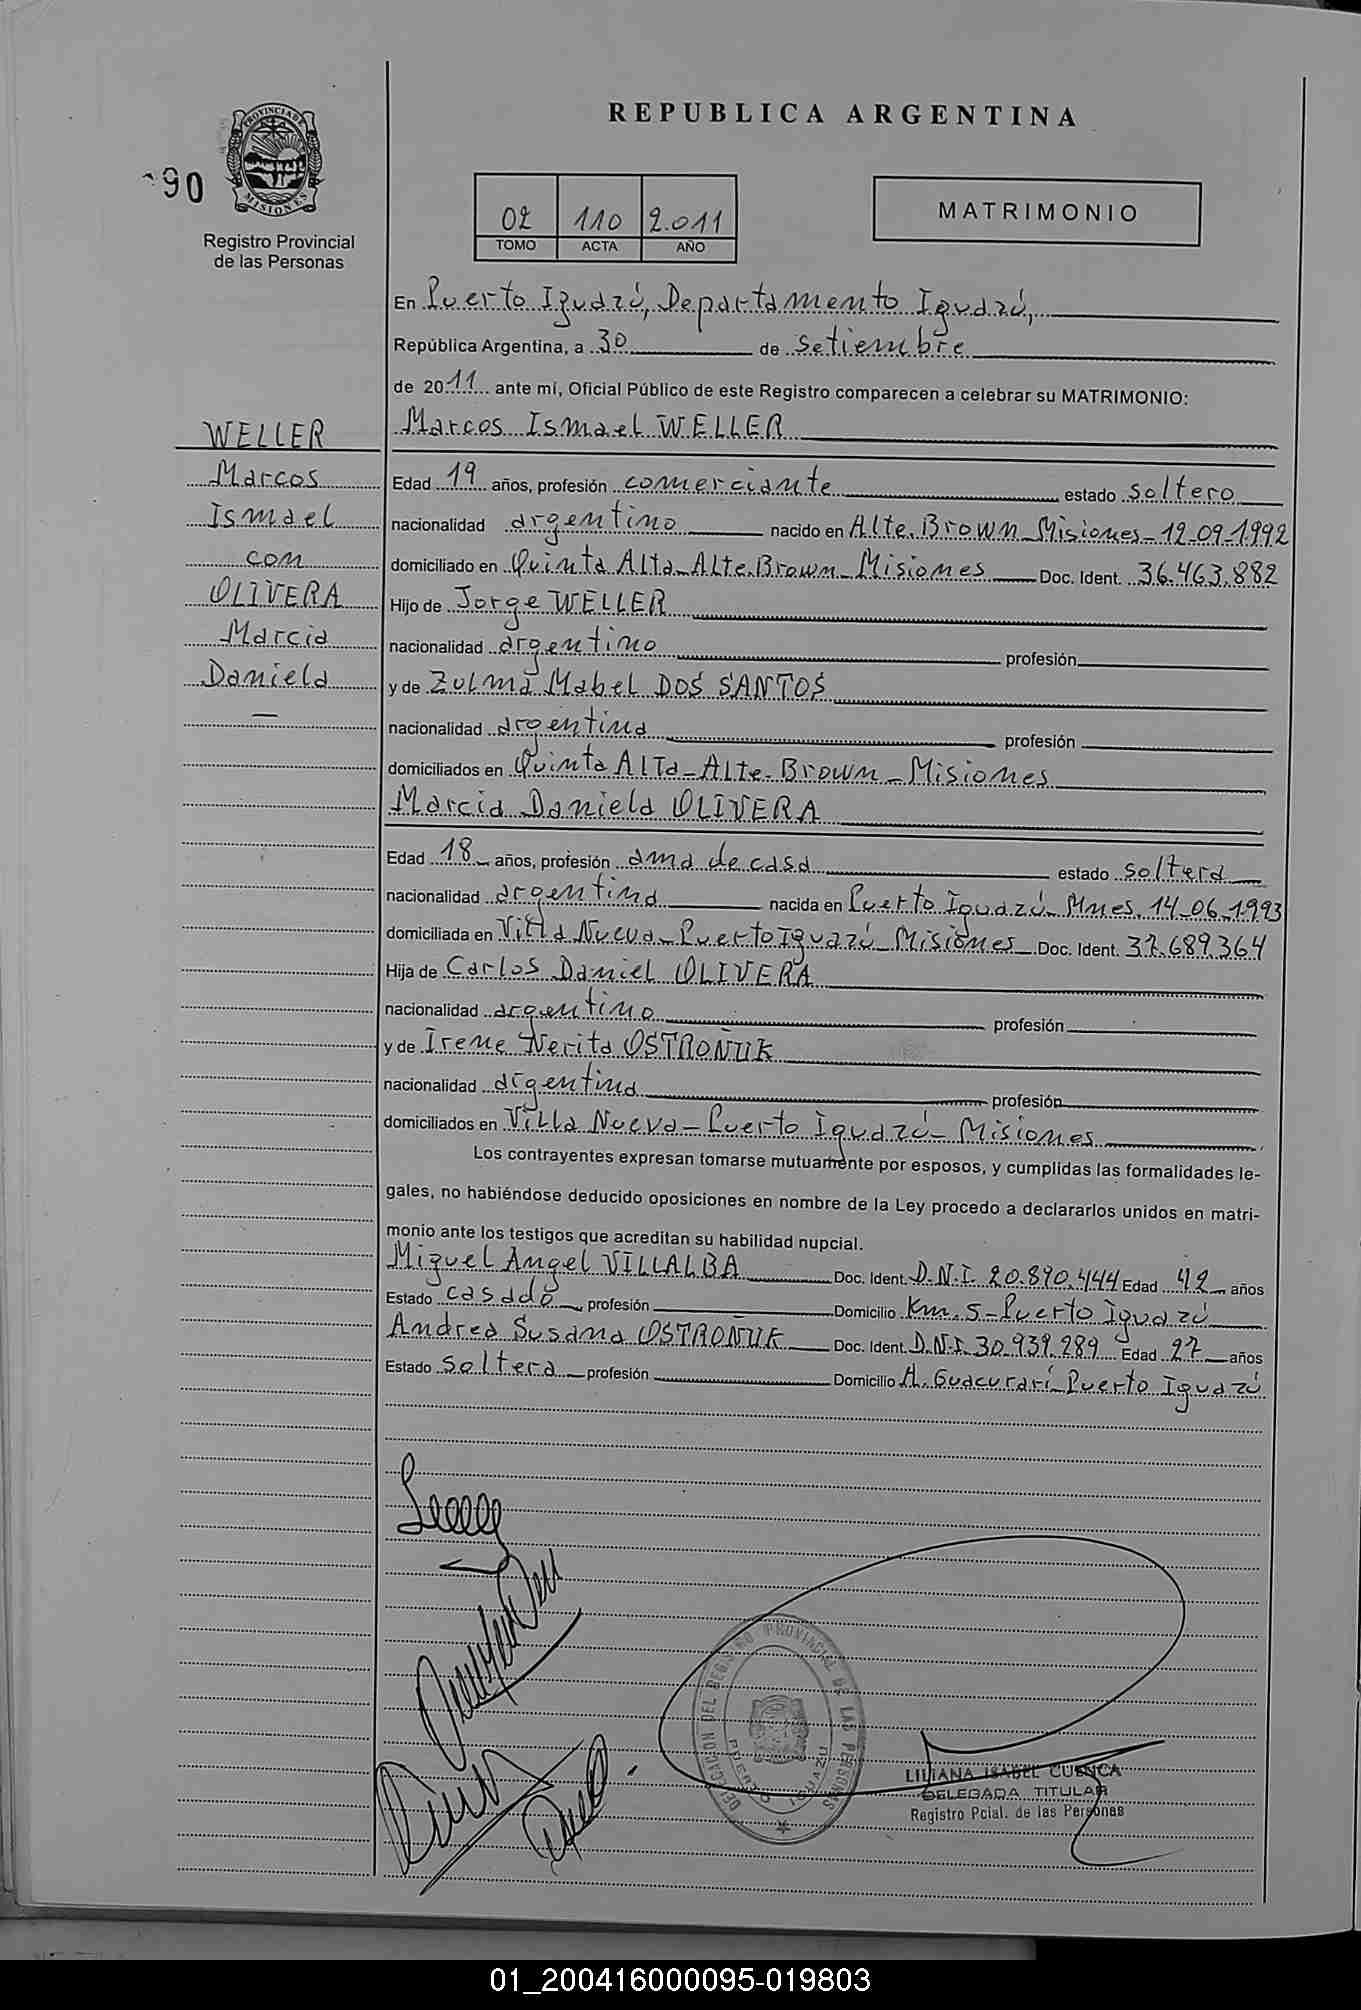 REPUBLICA ARGENTINA
PROVINCIA DE MISIONES
90
Registro Provincial
de las Personas
02 110 2.011
TOMO ACTA AÑO
MATRIMONIO
En Puerto Iguazú, Departamento Iguazú,
República Argentina, a 30 de setiembre
de 2011 ante mí, Oficial Público de este Registro comparecen a celebrar su MATRIMONIO:
WELLER
Marcos
Ismael
con
OLIVERA
Marcia
Daniela
—
Marcos Ismael WELLER
Edad 19 años, profesión comerciante estado soltero
nacionalidad argentino nacido en Alte. Brown - Misiones - 12-09-1992
domiciliado en Quinta Alta - Alte. Brown - Misiones Doc. Ident. 36.463.882
Hijo de Jorge WELLER
nacionalidad argentino profesión
y de Zulma Mabel DOS SANTOS
nacionalidad argentina profesión
domiciliados en Quinta Alta - Alte. Brown - Misiones
Marcia Daniela OLIVERA
Edad 18 años, profesión ama de casa estado soltera
nacionalidad argentina nacida en Puerto Iguazú - Mnes. 14-06-1993
domiciliada en Villa Nueva - Puerto Iguazú - Misiones Doc. Ident. 37.689.364
Hija de Carlos Daniel OLIVERA
nacionalidad argentino profesión
y de Irene Nerita OSTROÑUK
nacionalidad argentina profesión
domiciliados en Villa Nueva - Puerto Iguazú - Misiones
Los contrayentes expresan tomarse mutuamente por esposos, y cumplidas las formalidades le-
gales, no habiéndose deducido oposiciones en nombre de la Ley procedo a declararlos unidos en matri-
monio ante los testigos que acreditan su habilidad nupcial.
Miguel Angel VILLALBA Doc. Ident. D.N.I. 20.890.444 Edad 42 años
Estado casado profesión Domicilio Km. 5 - Puerto Iguazú
Andrea Susana OSTROÑUK Doc. Ident. D.N.I. 30.939.289 Edad 27 años
Estado soltera profesión Domicilio A. Guacurarí - Puerto Iguazú
DELEGACION DEL REGISTRO PROVINCIAL DE LAS PERSONAS
PUERTO IGUAZU
LILIANA ISABEL CUENCA
DELEGADA TITULAR
Registro Pcial. de las Personas
01_200416000095-019803